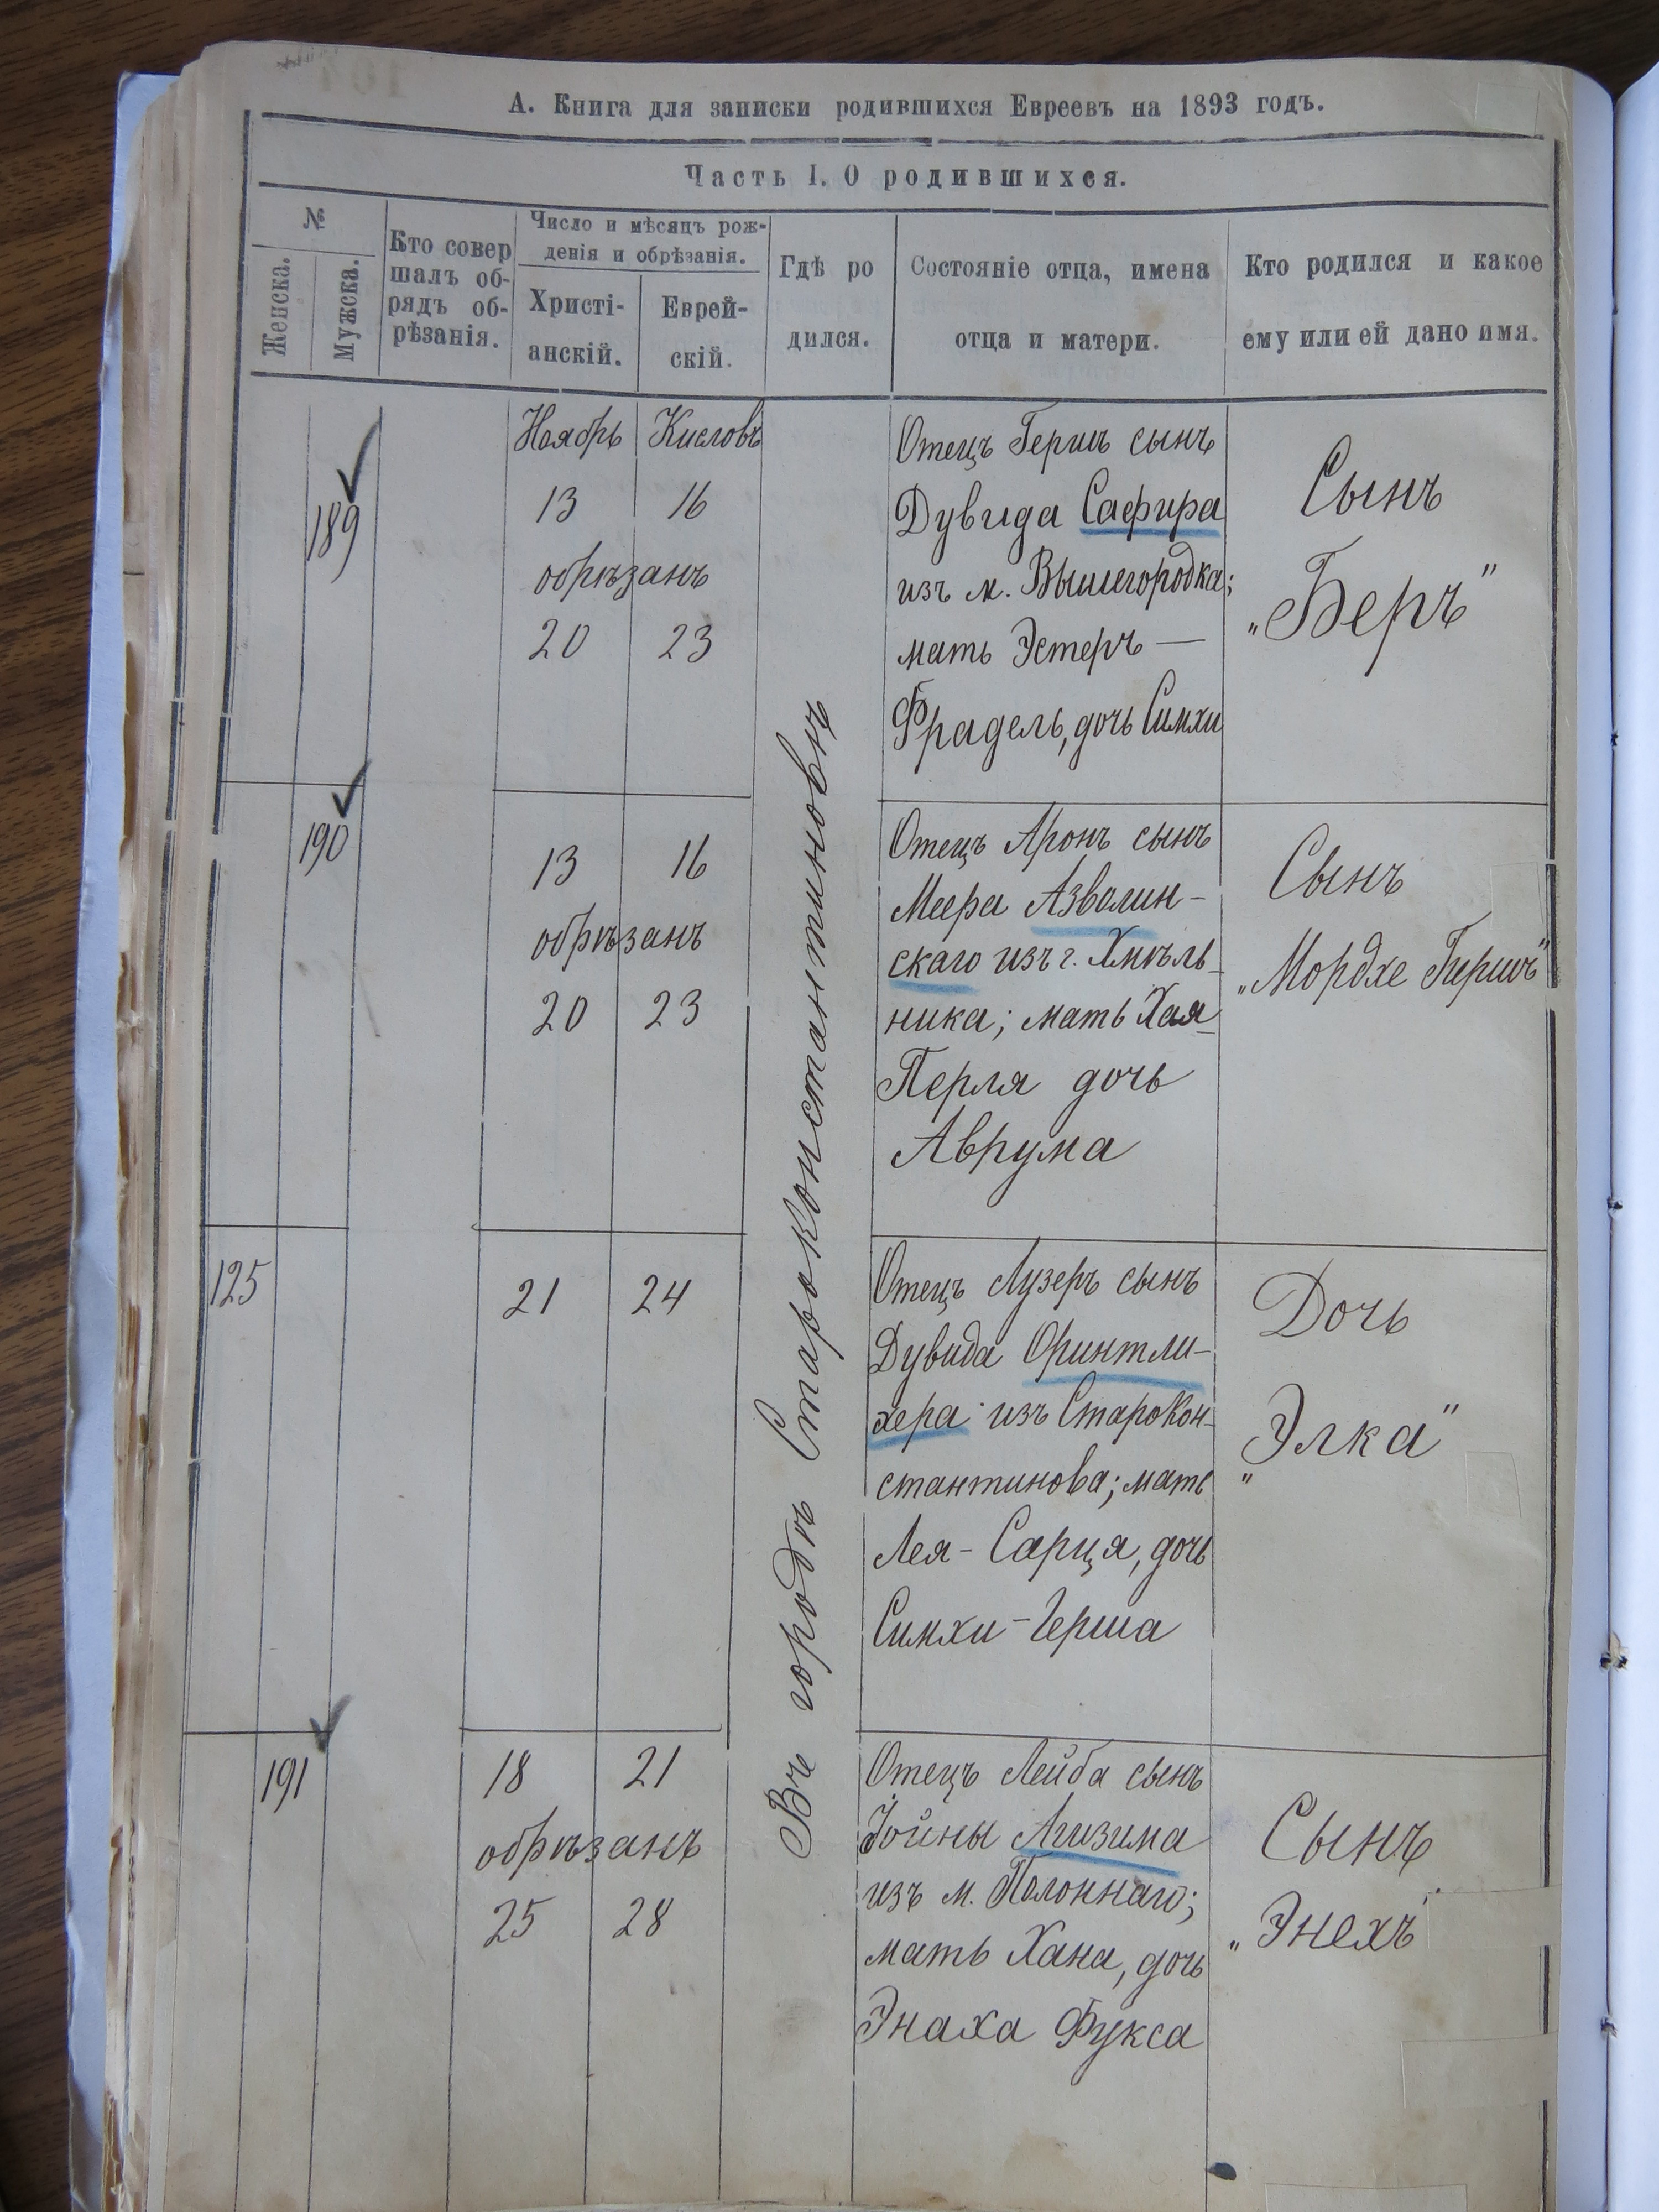 А. Книга для записки родившихся Евреевъ на 1893 годъ.
Часть I. О родившихся.
№
Женска.
Мужска.
Кто совер
шалъ об-
рядъ об-
рѣзанія.
Число и мѣсяцъ рож-
денія и обрѣзанія.
Христі-
анскій.
Еврей-
скій.
Гдѣ ро
дился.
Состояніе отца, имена
отца и матери.
Кто родился и какое
ему или ей дано имя.
Въ городѣ Староконстантиновѣ
189
Ноябрь Кисловъ
13 16
обрѣзанъ
20 23
Отецъ Гершъ сынъ
Дувида Сафира
изъ м. Вышегородка;
мать Эстеръ —
Фрадель, дочь Симхи
Сынъ
„Беръ"
190
13 16
обрѣзанъ
20 23
Отецъ Аронъ сынъ
Меера Азволин-
скаго изъ г. Хмѣль-
ника; мать Хая-
Перля дочь
Аврума
Сынъ
„Мордхе Гершъ"
125
21 24
Отецъ Лузеръ сынъ
Дувида Оринтли-
хера изъ Старокон-
стантинова; мать
Лея - Сарця, дочь
Симхи - Герша
Дочь
„Элка"
191
18 21
обрѣзанъ
25 28
Отецъ Лейба сынъ
Йойны
изъ м. Полоннаго;
мать Хана, дочь
Энаха Фукса
Сынъ
„Энехъ"